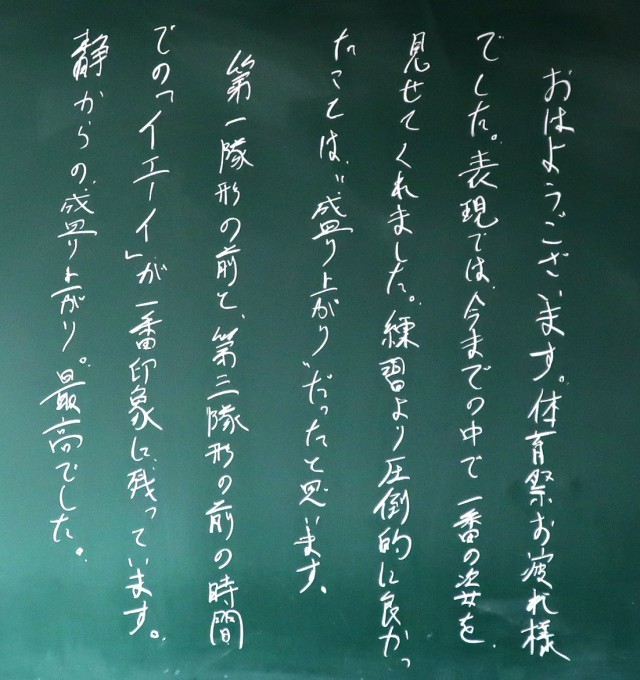 おはようございます。体育祭お疲れ様
でした。表現では、今までの中で一番の姿を
見せてくれました。練習より圧倒的に良かっ
たことは、"盛り上がり"だったと思います。
第一隊形の前と、第三隊形の前の時間
での「イエーイ」が一番印象に残っています。
静からの盛り上がり。最高でした。